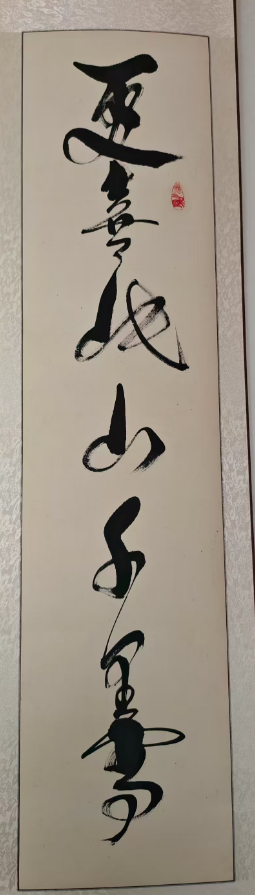 更喜岷山千里雪